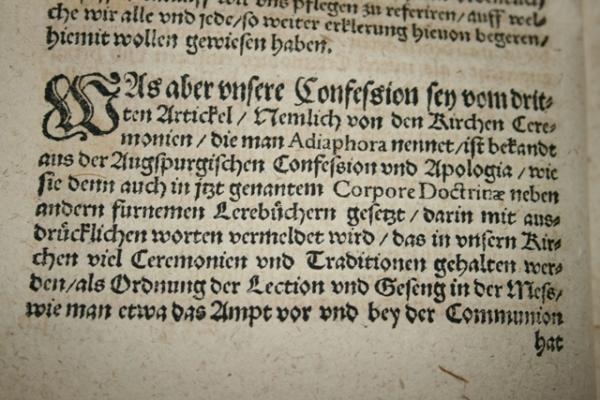 wir vns pflegen zu referiren/ auff wel-
che wir alle vnd jede/ so weiter erklerung hieuon begeren/
hiemit wollen gewiesen haben.
WAs aber vnsere Confession sey vom drit-
ten Artickel / Nemlich von den Kirchen Cere-
monien / die man Adiaphora nennet/ ist bekandt
aus der Augspurgischen Confession vnd Apologia / wie
sie denn auch in jtzt genantem Corpore Doctrinæ neben
andern furnemen Lerebüchern gesetzt / darin mit aus-
drücklichen worten vermeldet wird / das in vnsern Kir-
chen viel Ceremonien vnd Traditionen gehalten wer-
den/ als Ordnung der Lection vnd Geseng in der Mess/
wie man etwa das Ampt vor vnd bey der Communion
hat